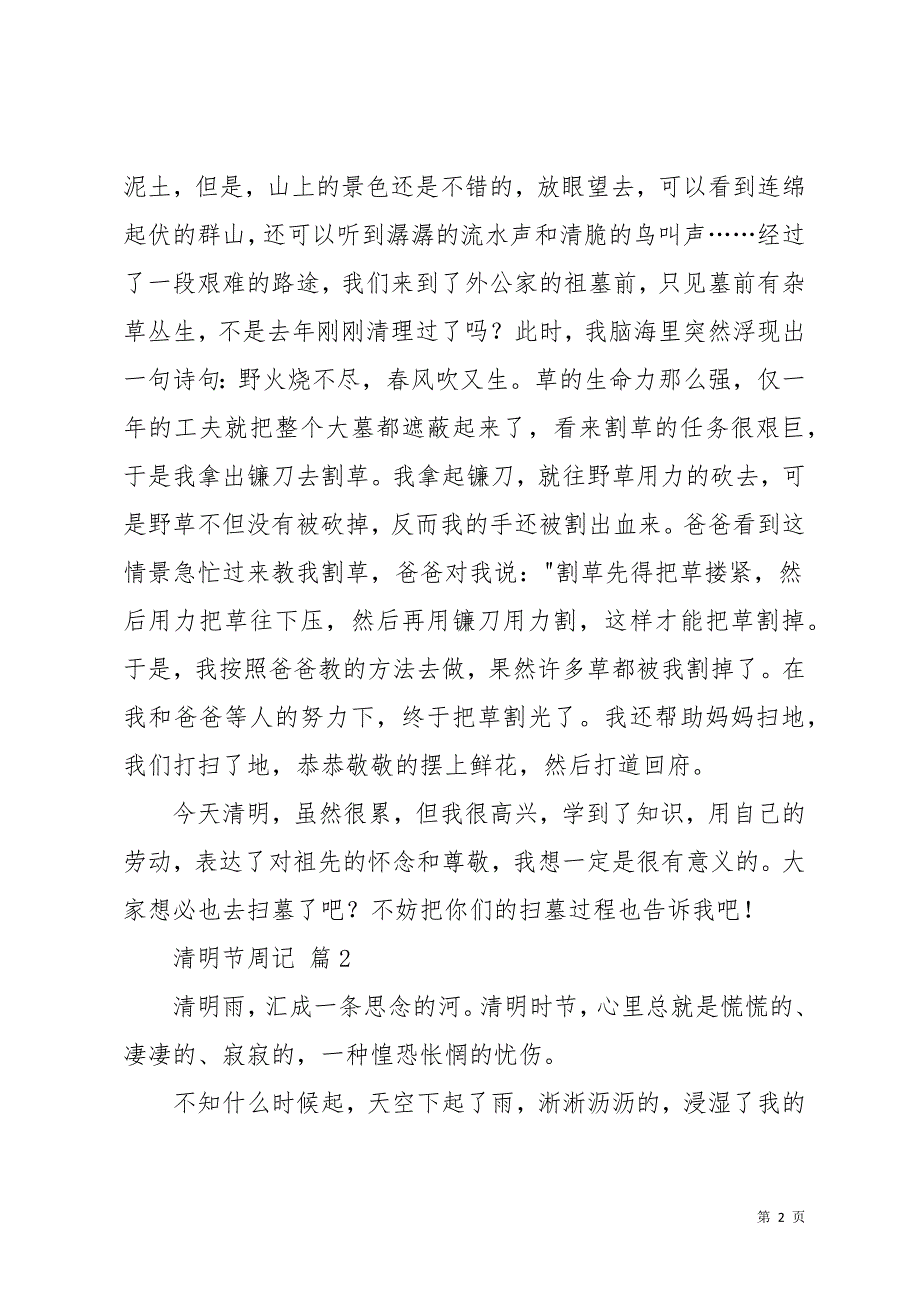 泥土，但是，山上的景色还是不错的，放眼望去，可以看到连绵
起伏的群山，还可以听到潺潺的流水声和清脆的鸟叫声……经过
了一段艰难的路途，我们来到了外公家的祖墓前，只见墓前有杂
草丛生，不是去年刚刚清理过了吗？此时，我脑海里突然浮现出
一句诗句：野火烧不尽，春风吹又生。草的生命力那么强，仅一
年的工夫就把整个大墓都遮蔽起来了，看来割草的任务很艰巨，
于是我拿出镰刀去割草。我拿起镰刀，就往野草用力的砍去，可
是野草不但没有被砍掉，反而我的手还被割出血来。爸爸看到这
情景急忙过来教我割草，爸爸对我说："割草先得把草搂紧，然
后用力把草往下压，然后再用镰刀用力割，这样才能把草割掉。
于是，我按照爸爸教的方法去做，果然许多草都被我割掉了。在
我和爸爸等人的努力下，终于把草割光了。我还帮助妈妈扫地，
我们打扫了地，恭恭敬敬的摆上鲜花，然后打道回府。
今天清明，虽然很累，但我很高兴，学到了知识，用自己的
劳动，表达了对祖先的怀念和尊敬，我想一定是很有意义的。大
家想必也去扫墓了吧？不妨把你们的扫墓过程也告诉我吧！
清明节周记 篇2
清明雨，汇成一条思念的河。清明时节，心里总就是慌慌的、
凄凄的、寂寂的，一种惶恐怅惘的忧伤。
不知什么时候起，天空下起了雨，淅淅沥沥的，浸湿了我的
第 2 页